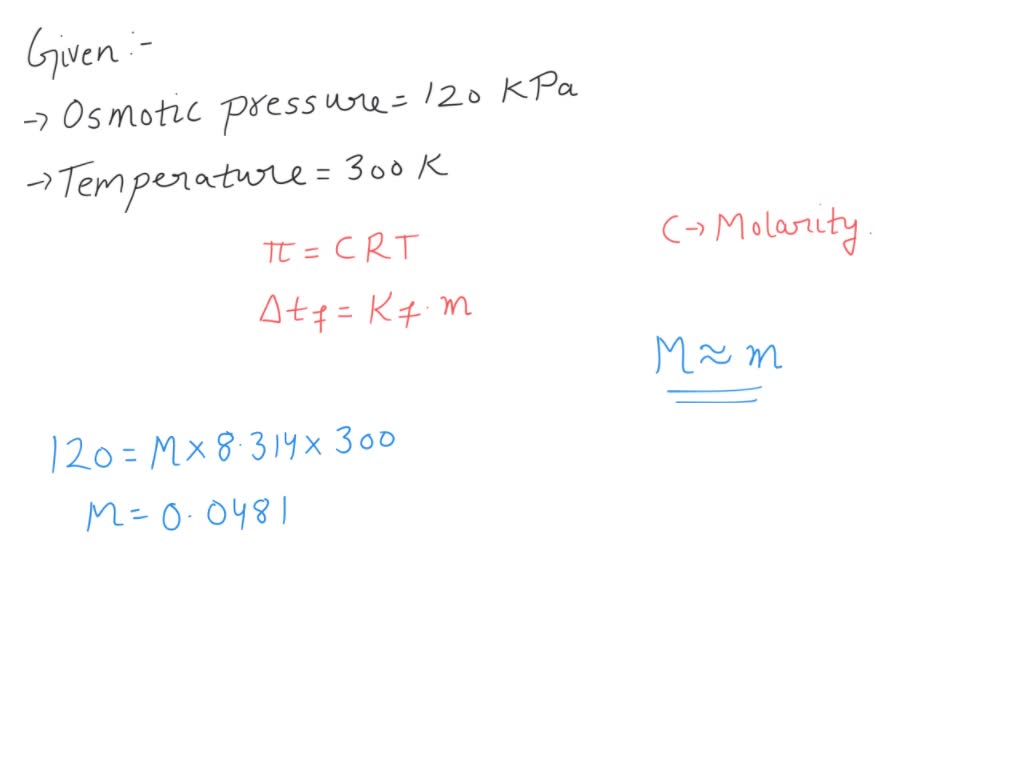 Given :-
→ Osmotic pressure = 120 KPa
→ Temperature = 300 K
π = CRT
C → Molarity.
Δtf = Kf · m
M ≈ m
120 = M × 8.314 × 300
M = 0.0481